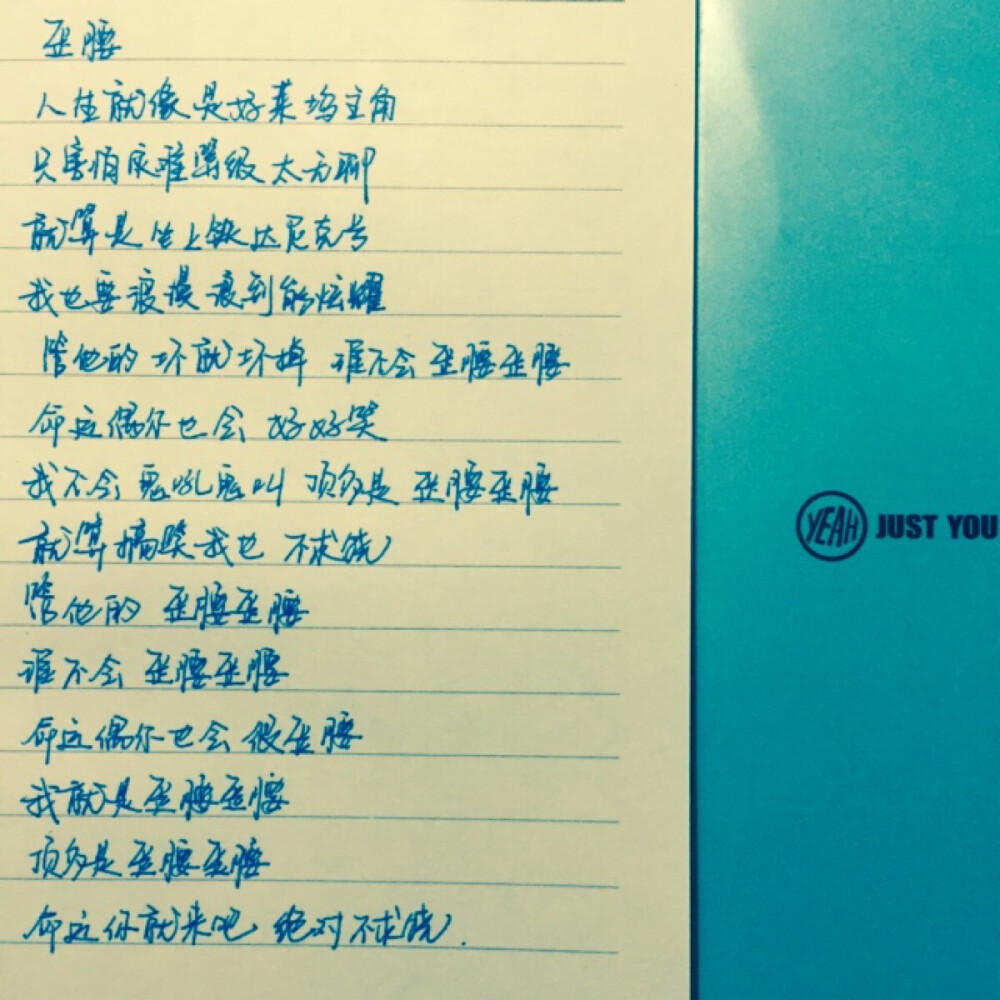 歪腰
人生就像是好莱坞主角
只害怕灾难等级太无聊
就算是坐上铁达尼克号
我也要浪漫浪到能炫耀
管他的 坏就坏掉 谁不会 歪腰歪腰
命运偶尔也会 好好笑
我不会鬼吼鬼叫 顶多是 歪腰歪腰
就算搞笑我也 不求饶
管他的 歪腰歪腰
谁不会 歪腰歪腰
命运偶尔也会 很歪腰
我就是歪腰歪腰
顶多是歪腰歪腰
命运你就来吧 绝对不求饶.
YEAH JUST YOU